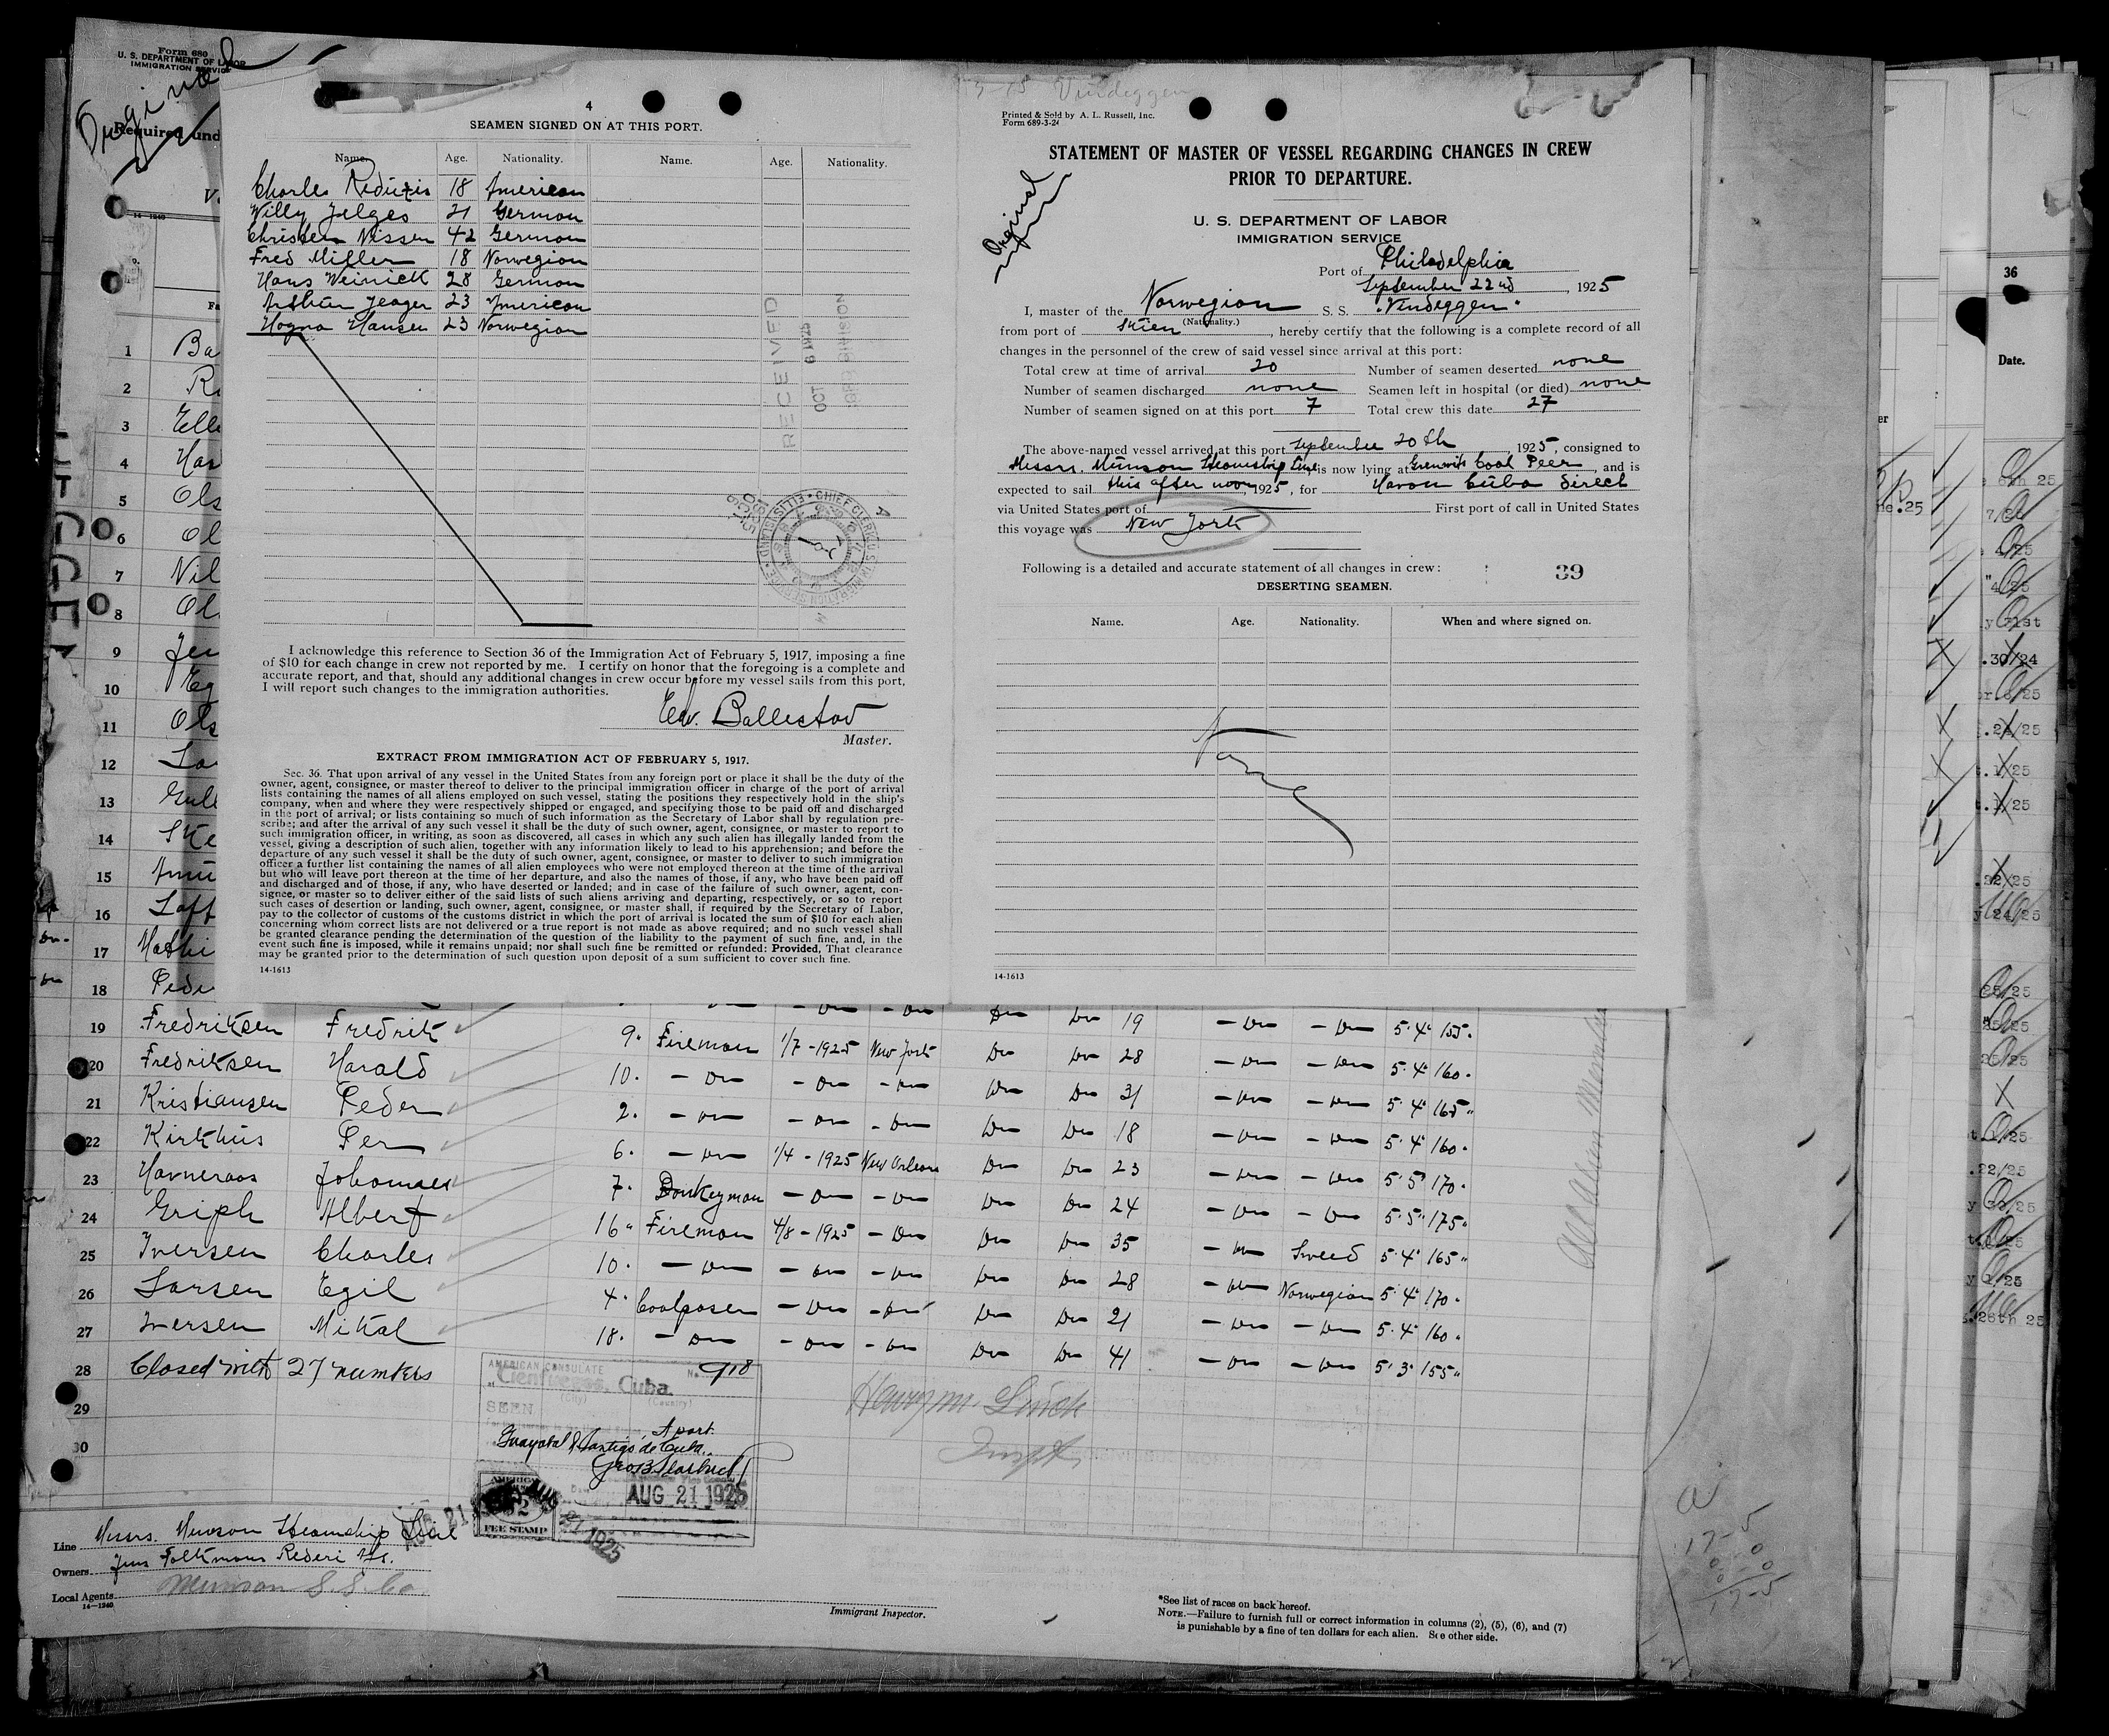 Form 680
U. S. DEPARTMENT OF LABOR
IMMIGRATION SERVICE
Original
Required und
4
SEAMEN SIGNED ON AT THIS PORT.
Name. Age. Nationality. Name. Age. Nationality.
Charles Redutis 18 American
Willy Jelges 21 German
Christen Nissen 42 German
Fred Miller 18 Norwegian
Hans Weinick 28 German
Arthur Jeager 23 American
Hogna Hansen 23 Norwegian
RECEIVED
OCT 6 1925
I acknowledge this reference to Section 36 of the Immigration Act of February 5, 1917, imposing a fine
of $10 for each change in crew not reported by me. I certify on honor that the foregoing is a complete and
accurate report, and that, should any additional changes in crew occur before my vessel sails from this port,
I will report such changes to the immigration authorities.
Edw. Ballestad
Master.
EXTRACT FROM IMMIGRATION ACT OF FEBRUARY 5, 1917.
Sec. 36. That upon arrival of any vessel in the United States from any foreign port or place it shall be the duty of the
owner, agent, consignee, or master thereof to deliver to the principal immigration officer in charge of the port of arrival
lists containing the names of all aliens employed on such vessel, stating the positions they respectively hold in the ship's
company, when and where they were respectively shipped or engaged, and specifying those to be paid off and discharged
in the port of arrival; or lists containing so much of such information as the Secretary of Labor shall by regulation pre-
scribe; and after the arrival of any such vessel it shall be the duty of such owner, agent, consignee, or master to report to
such immigration officer, in writing, as soon as discovered, all cases in which any such alien has illegally landed from the
vessel, giving a description of such alien, together with any information likely to lead to his apprehension; and before the
departure of any such vessel it shall be the duty of such owner, agent, consignee, or master to deliver to such immigration
officer a further list containing the names of all alien employees who were not employed thereon at the time of the arrival
but who will leave port thereon at the time of her departure, and also the names of those, if any, who have been paid off
and discharged and of those, if any, who have deserted or landed; and in case of the failure of such owner, agent, con-
signee, or master so to deliver either of the said lists of such aliens arriving and departing, respectively, or so to report
such cases of desertion or landing, such owner, agent, consignee, or master shall, if required by the Secretary of Labor,
pay to the collector of customs of the customs district in which the port of arrival is located the sum of $10 for each alien
concerning whom correct lists are not delivered or a true report is not made as above required; and no such vessel shall
be granted clearance pending the determination of the question of the liability to the payment of such fine, and, in the
event such fine is imposed, while it remains unpaid; nor shall such fine be remitted or refunded: Provided, That clearance
may be granted prior to the determination of such question upon deposit of a sum sufficient to cover such fine.
14-1613
Vindeggen
Printed & Sold by A. L. Russell, Inc.
Form 689-3-24
Original
STATEMENT OF MASTER OF VESSEL REGARDING CHANGES IN CREW
PRIOR TO DEPARTURE.
U. S. DEPARTMENT OF LABOR
IMMIGRATION SERVICE
Port of Philadelphia
September 22nd, 1925
I, master of the Norwegian S. S. "Vindeggen"
(Nationality.)
from port of Skien, hereby certify that the following is a complete record of all
changes in the personnel of the crew of said vessel since arrival at this port:
Total crew at time of arrival 20 Number of seamen deserted none
Number of seamen discharged none Seamen left in hospital (or died) none
Number of seamen signed on at this port 7 Total crew this date 27
The above-named vessel arrived at this port September 20th, 1925, consigned to
Messrs. Munson Steamship Line, is now lying at Grenwits Coal Peer, and is
expected to sail this after noon, 1925, for Havan Cuba direct
via United States port of First port of call in United States
this voyage was New York
Following is a detailed and accurate statement of all changes in crew:
39
DESERTING SEAMEN.
Name. Age. Nationality. When and where signed on.
None
14-1613
1 Ba
2 R
3 Elle
4 Han
5 Ols
6 Ol
7 Nil
8 Ol
9 Jen
10 Eg
11 Ols
12 La
13 Gull
14 Ske
15 Amu
16 Loft
17 Mathi
18 Pede
19 Fredriksen Fredrik 9. Fireman 1/7-1925 New York Do Do 19 — Do — — Do — 5.4" 155.
20 Fredriksen Harald 10. — Do — — Do — — Do — Do Do 28 — Do — — Do — 5.4" 160.
21 Kristiansen Peder 2. — Do — — Do — — Do — Do Do 31 — Do — — Do — 5.4" 165"
22 Kirkhus Per 6. — Do — 1/4-1925 New Orleans Do Do 18 — Do — — Do — 5.4" 160.
23 Havneraas Johannes 7. Donkeyman — Do — — Do — Do Do 23 — Do — — Do — 5.5" 170.
24 Griph Albert 16" Fireman 4/8-1925 — Do — Do Do 24 — Do — — Do — 5.5" 175"
25 Iversen Charles 10. — Do — — Do — — Do — Do Do 35 — Do — Sweed 5.4" 165"
26 Larsen Egil 4. Coalpaser — Do — — Do — Do Do 28 — Do — Norwegian 5.4" 170.
27 Iversen Mikal 18. — Do — — Do — — Do — Do Do 21 — Do — — Do — 5.4" 160.
Do Do 41 — Do — — Do — 5.3" 155"
28 Closed with 27 numbers
29
30
AMERICAN CONSULATE
No. 918
Cienfuegos, Cuba.
(City) (Country)
SEEN
Guayabal & Santigo de Cuba.
AUG 21 1925
FEE STAMP
Inspt
Line Messrs. Munson Steamship Line
Owners
Local Agents Munson S. S. Co
14-1240
Immigrant Inspector.
*See list of races on back hereof.
NOTE.—Failure to furnish full or correct information in columns (2), (5), (6), and (7)
is punishable by a fine of ten dollars for each alien. See other side.
36
Date.